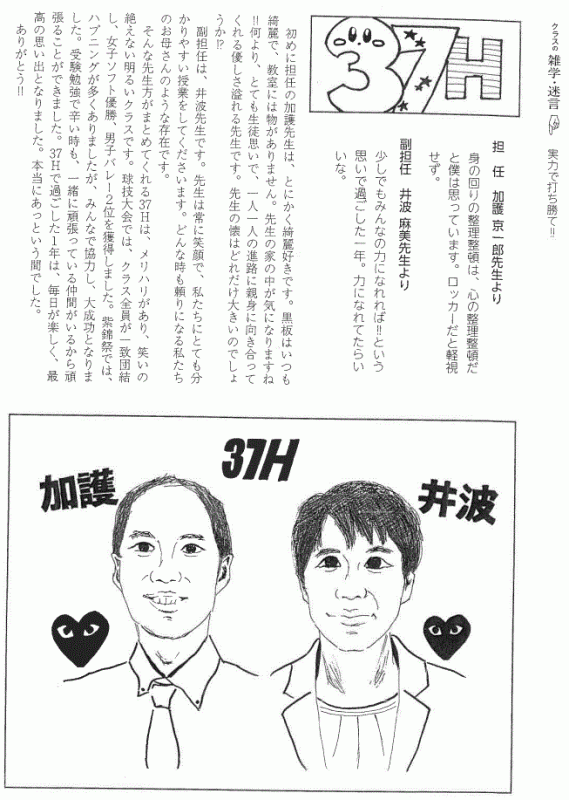 クラスの 雑学・迷言 実力で打ち勝て!!
37H
担 任 加護 京一郎先生より
身の回りの整理整頓は、心の整理整頓だ
と僕は思っています。ロッカーだと軽視
せず。
副担任 井波 麻美先生より
少しでもみんなの力になれれば!!という
思いで過ごした一年。力になれてたらい
いな。
初めに担任の加護先生は、とにかく綺麗好きです。黒板はいつも
綺麗で、教室には物がありません。先生の家の中が気になりますね
!!何より、とても生徒思いで、一人一人の進路に親身に向き合って
くれる優しさ溢れる先生です。先生の懐はどれだけ大きいのでしょ
うか!?
副担任は、井波先生です。先生は常に笑顔で、私たちにとても分
かりやすい授業をしてくださいます。どんな時も頼りになる私たち
のお母さんのような存在です。
そんな先生方がまとめてくれる37Hは、メリハリがあり、笑いの
絶えない明るいクラスです。球技大会では、クラス全員が一致団結
し、女子ソフト優勝、男子バレー2位を獲得しました。紫錦祭では、
ハプニングが多くありましたが、みんなで協力し、大成功となりま
した。受験勉強で辛い時も、一緒に頑張っている仲間がいるから頑
張ることができました。37Hで過ごした1年は、毎日が楽しく、最
高の思い出となりました。本当にあっという間でした。
ありがとう!!
37H
加護
井波